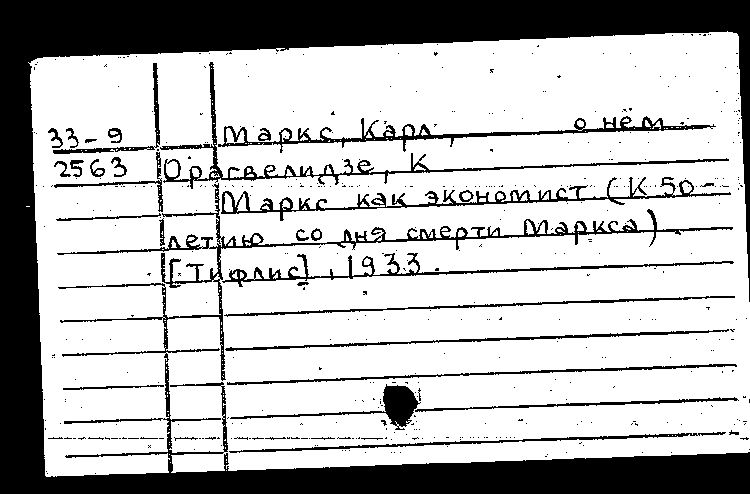 33-9 Маркс, Карл, о нём.
2563 Орагвелидзе, К
Маркс как экономист (К 50-
летию со дня смерти Маркса).
[Тифлис], 1933.